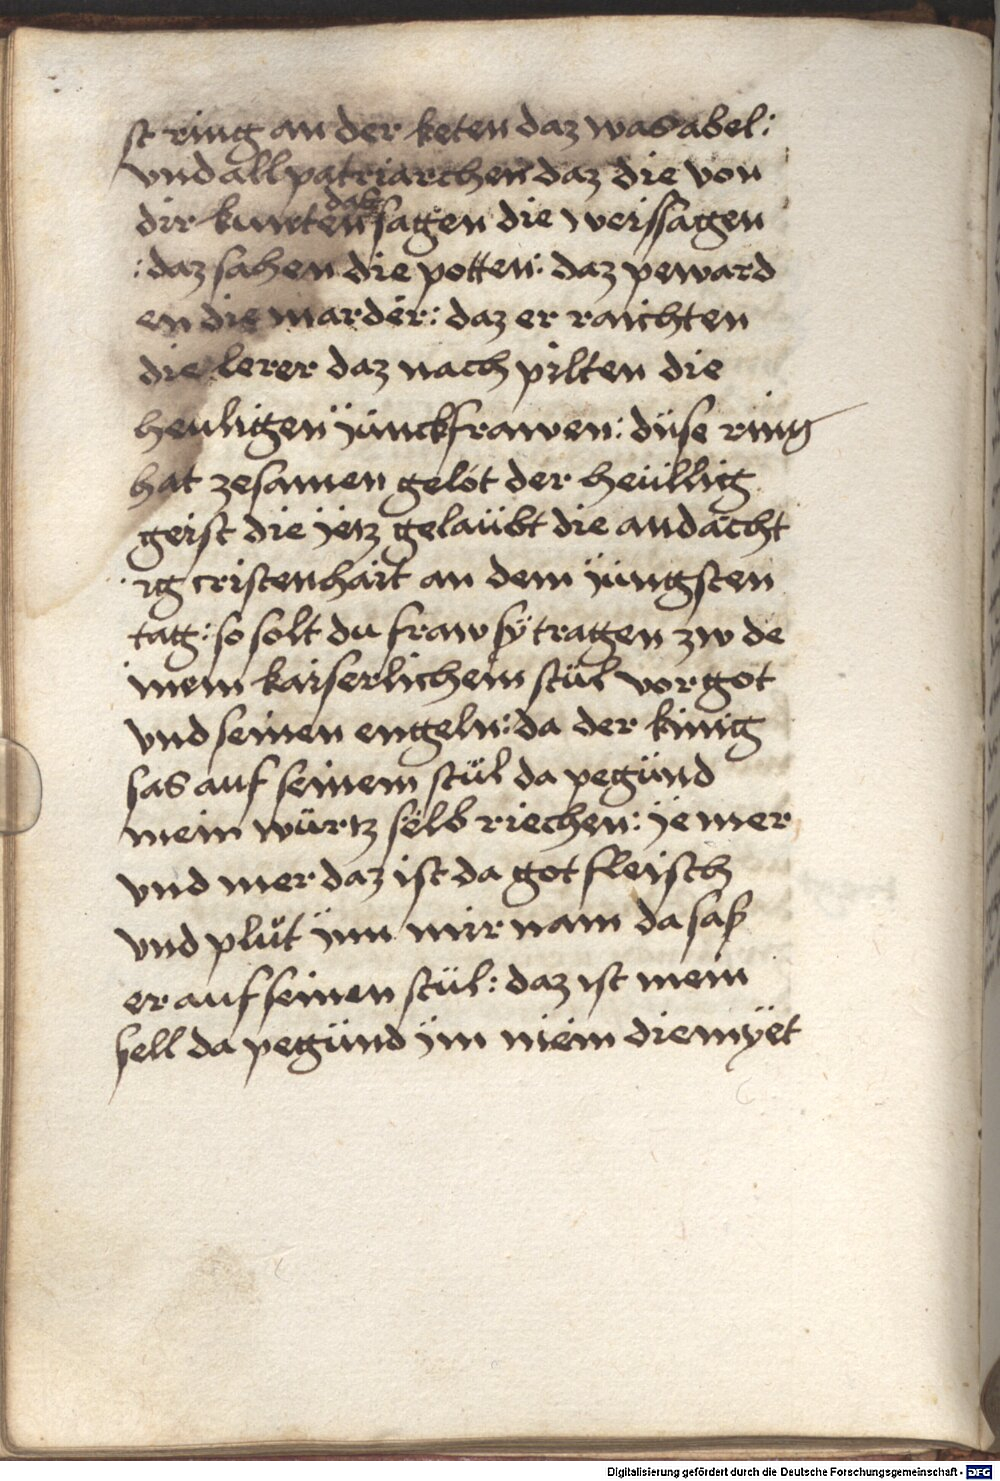 st ring an der keten daz was abel:
vnd all patriarchen daz die von
dir kunten daz sagen die weissagen
: daz sahen die potten: daz peward
en die marder: daz er raichten
die lerer daz nach pilten die
heuligen jünckfrawen: düse ring
hat zesamen gelöt der heüllig
geist die jetz gelaübt die andächt
ig cristenhait an dem jüngsten
tag: so solt du fraw sÿ tragen zw de
inem kaiserlichein stül vor got
vnd seinen engeln: da der kinig
sas auf seinem stül da pegünd
mein würtz selb riechen: je mer
vnd mer daz ist da got fleisch
vnd plüt jnn mir nam da saß
er auf seinen stül: daz ist mein
sell da pegünd jm mein diemÿet
Digitalisierung gefördert durch die Deutsche Forschungsgemeinschaft - DFG